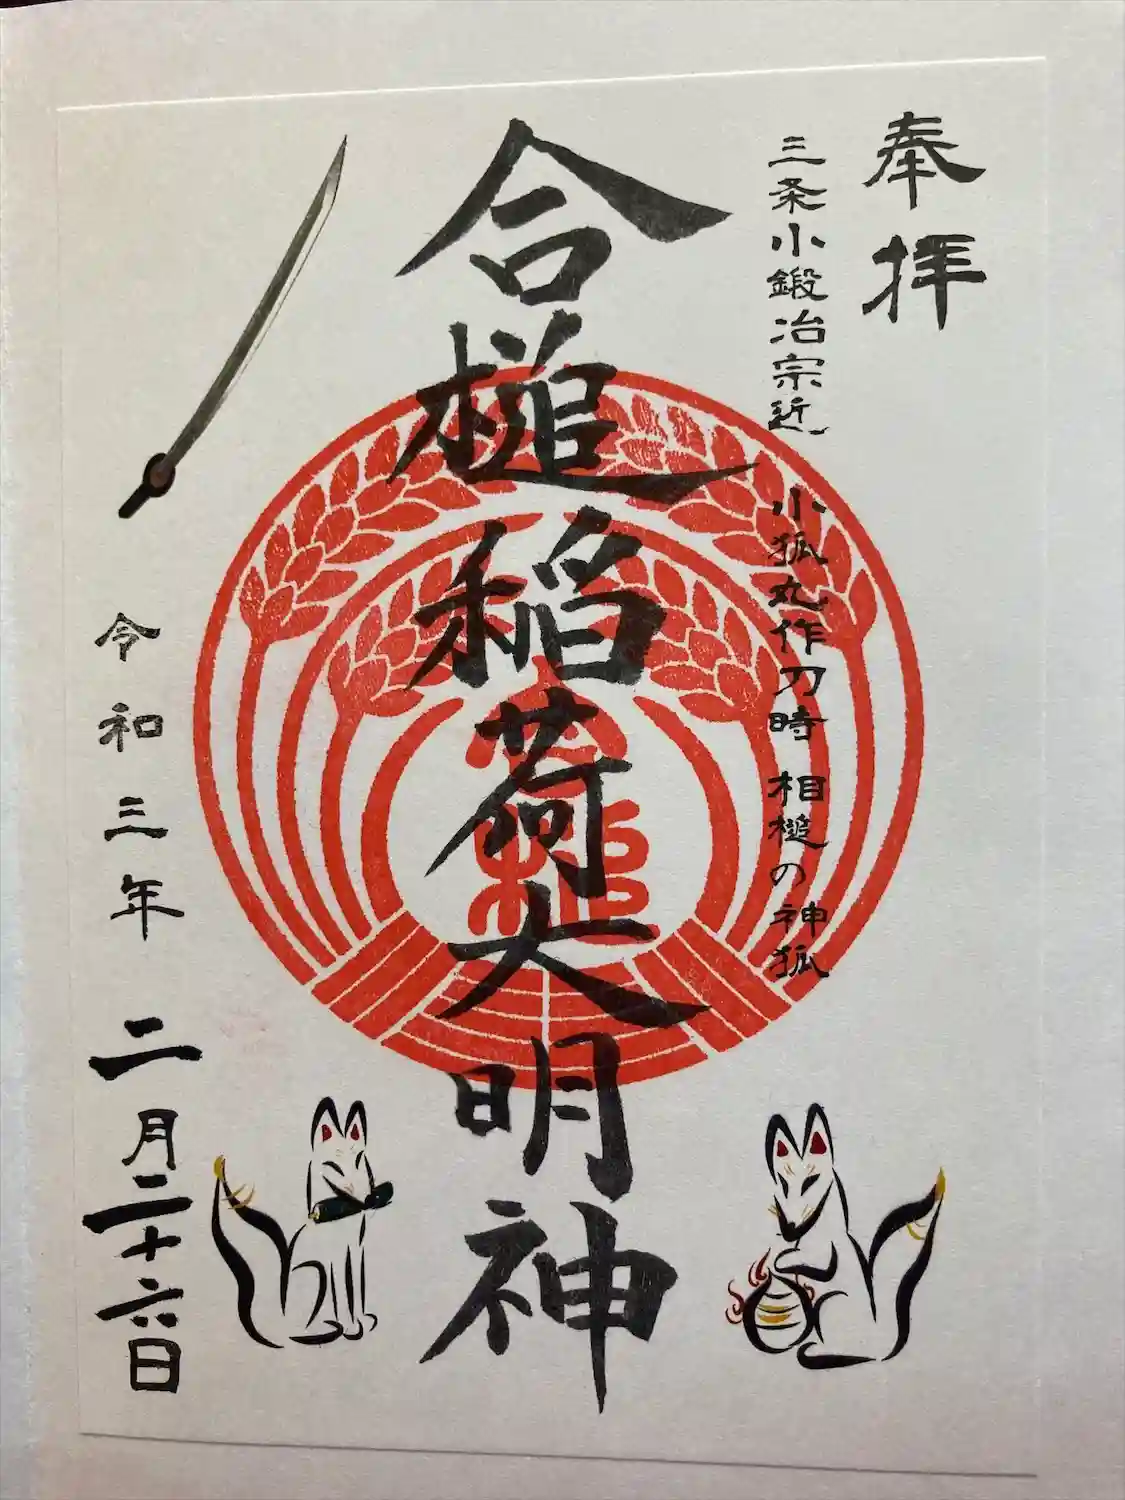 奉拝
三条小鍛冶宗近
小狐丸作刀時 相槌の神狐
合槌稲荷大明神
令和三年 二月二十六日